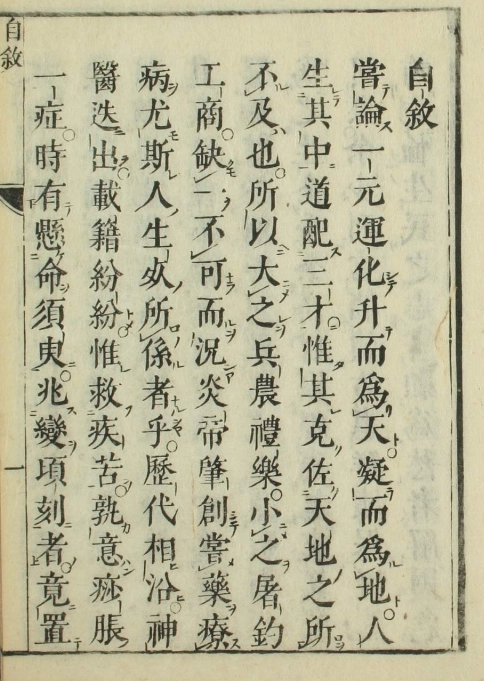 自敘
嘗論一元運化升而爲天凝而爲地人
生其中道配三才惟其克佐天地之所
不及也所以大之兵農禮樂小之屠釣
工商缺一不可而況炎帝肇創嘗藥療
病尤斯人生死所係者乎歷代相沿神
醫迭出載籍紛紛惟救疾苦孰意痧脹
一症時有懸命須臾兆變頃刻者竟置
自敘
一